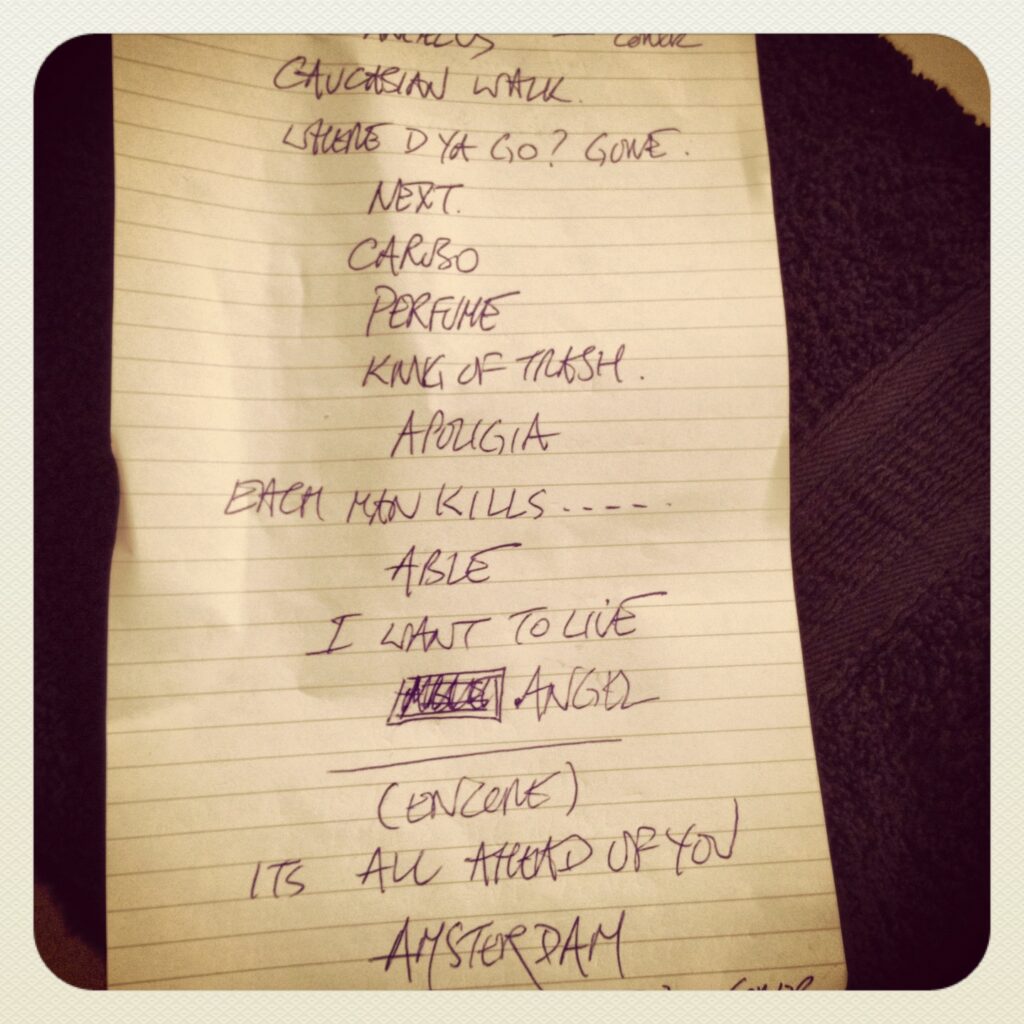 CAUCASIAN WALK.
WHERE D YA GO? GONE.
NEXT.
CARIBO
PERFUME
KING OF TRASH.
APOLIGIA
EACH MAN KILLS.....
ABLE
I WANT TO LIVE
ANGEL
(ENCORE)
ITS ALL AHEAD OF YOU
AMSTERDAM